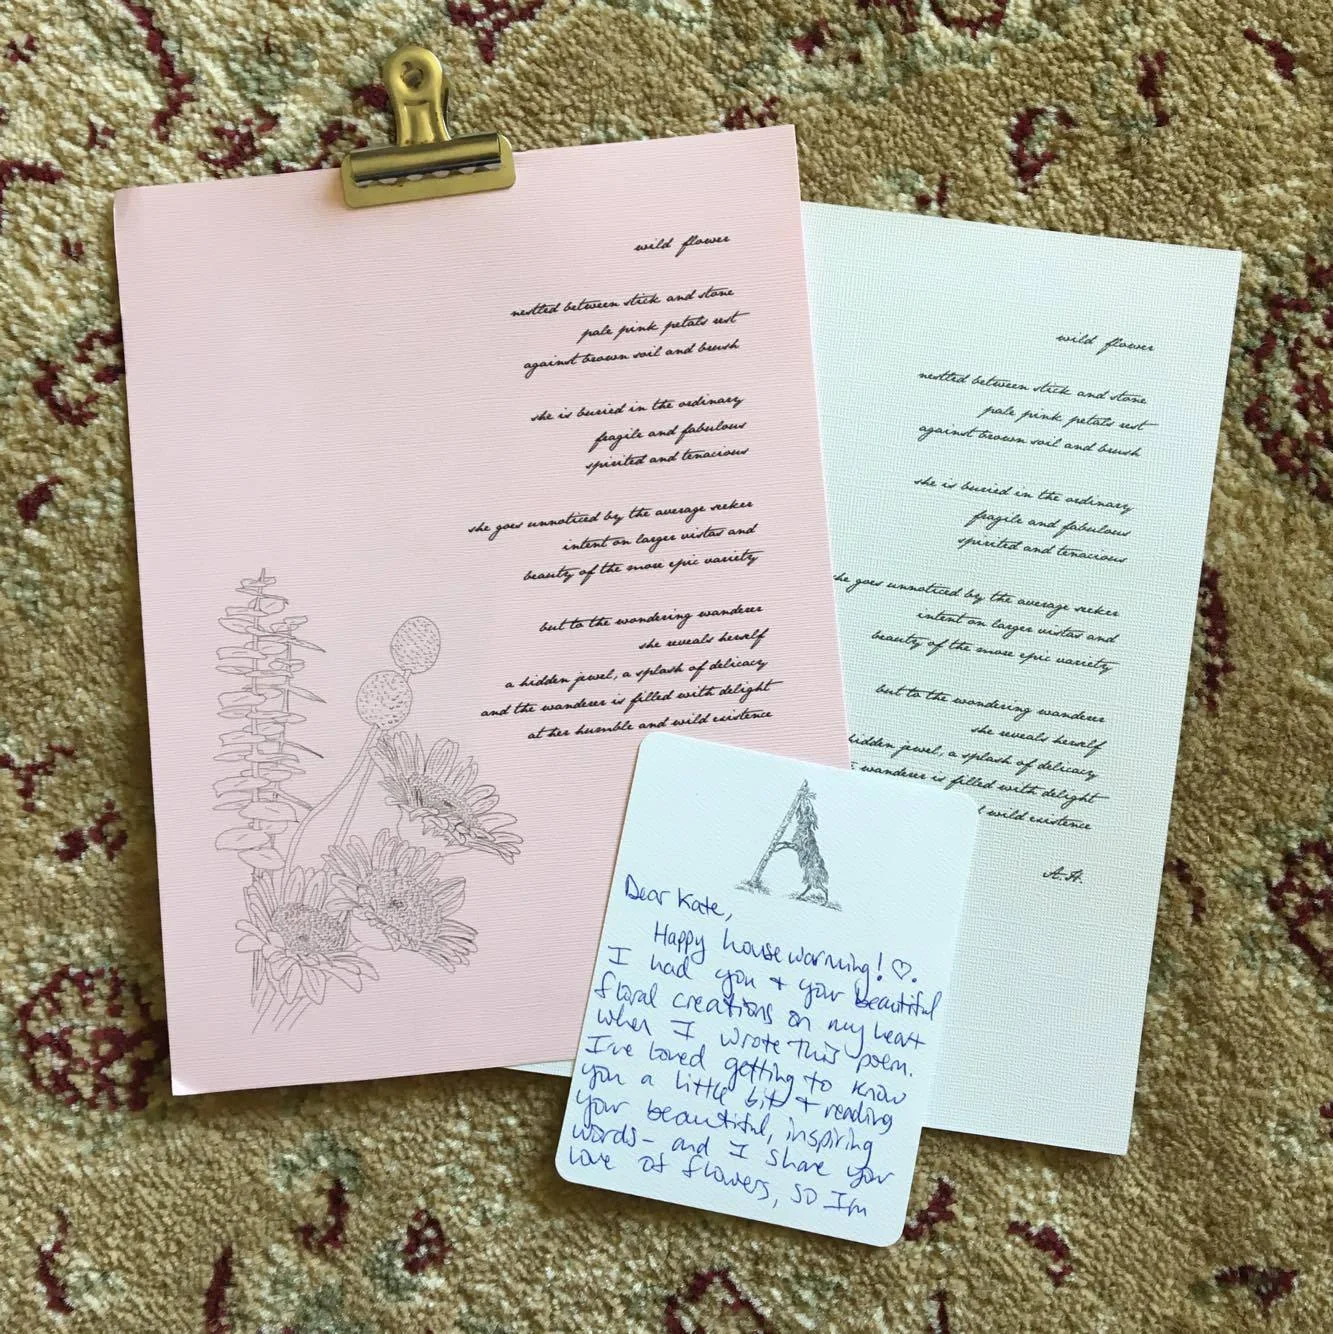 wild flower
nestled between stick and stone
pale pink petals rest
against brown soil and brush
she is buried in the ordinary
fragile and fabulous
spirited and tenacious
she goes unnoticed by the average seeker
intent on larger vistas and
beauty of the more epic variety
but to the wondering wanderer
she reveals herself
a hidden jewel, a splash of delicacy
and the wanderer is filled with delight
at her humble and wild existence
wild flower
nestled between stick and stone
pale pink petals rest
against brown soil and brush
she is buried in the ordinary
fragile and fabulous
spirited and tenacious
she goes unnoticed by the average seeker
intent on larger vistas and
beauty of the more epic variety
but to the wondering wanderer
she reveals herself
hidden jewel, a splash of delicacy
wanderer is filled with delight
wild existence
A.H.
A
Dear Kate,
Happy housewarming! ♡.
I had you + your beautiful
floral creations on my heart
when I wrote this poem.
I've loved getting to know
you a little bit + reading
your beautiful, inspiring
words - and I share your
love of flowers, so I'm